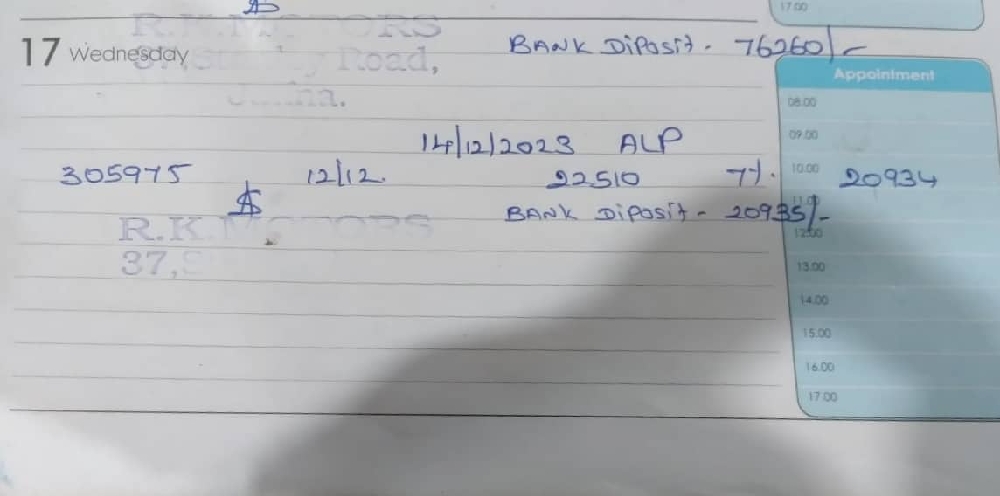 17.00
R.K.MOTORS
17 Wednesday
BANK Diposit - 76260/-
Road,
Appointment
08.00
14/12/2023 ALP
09.00
305975 12/12. 22510 7%. 20934
10.00
BANK Diposit - 20935/-
11.00
R.K.MOTORS
12.00
37,
13.00
14.00
15.00
16.00
17.00